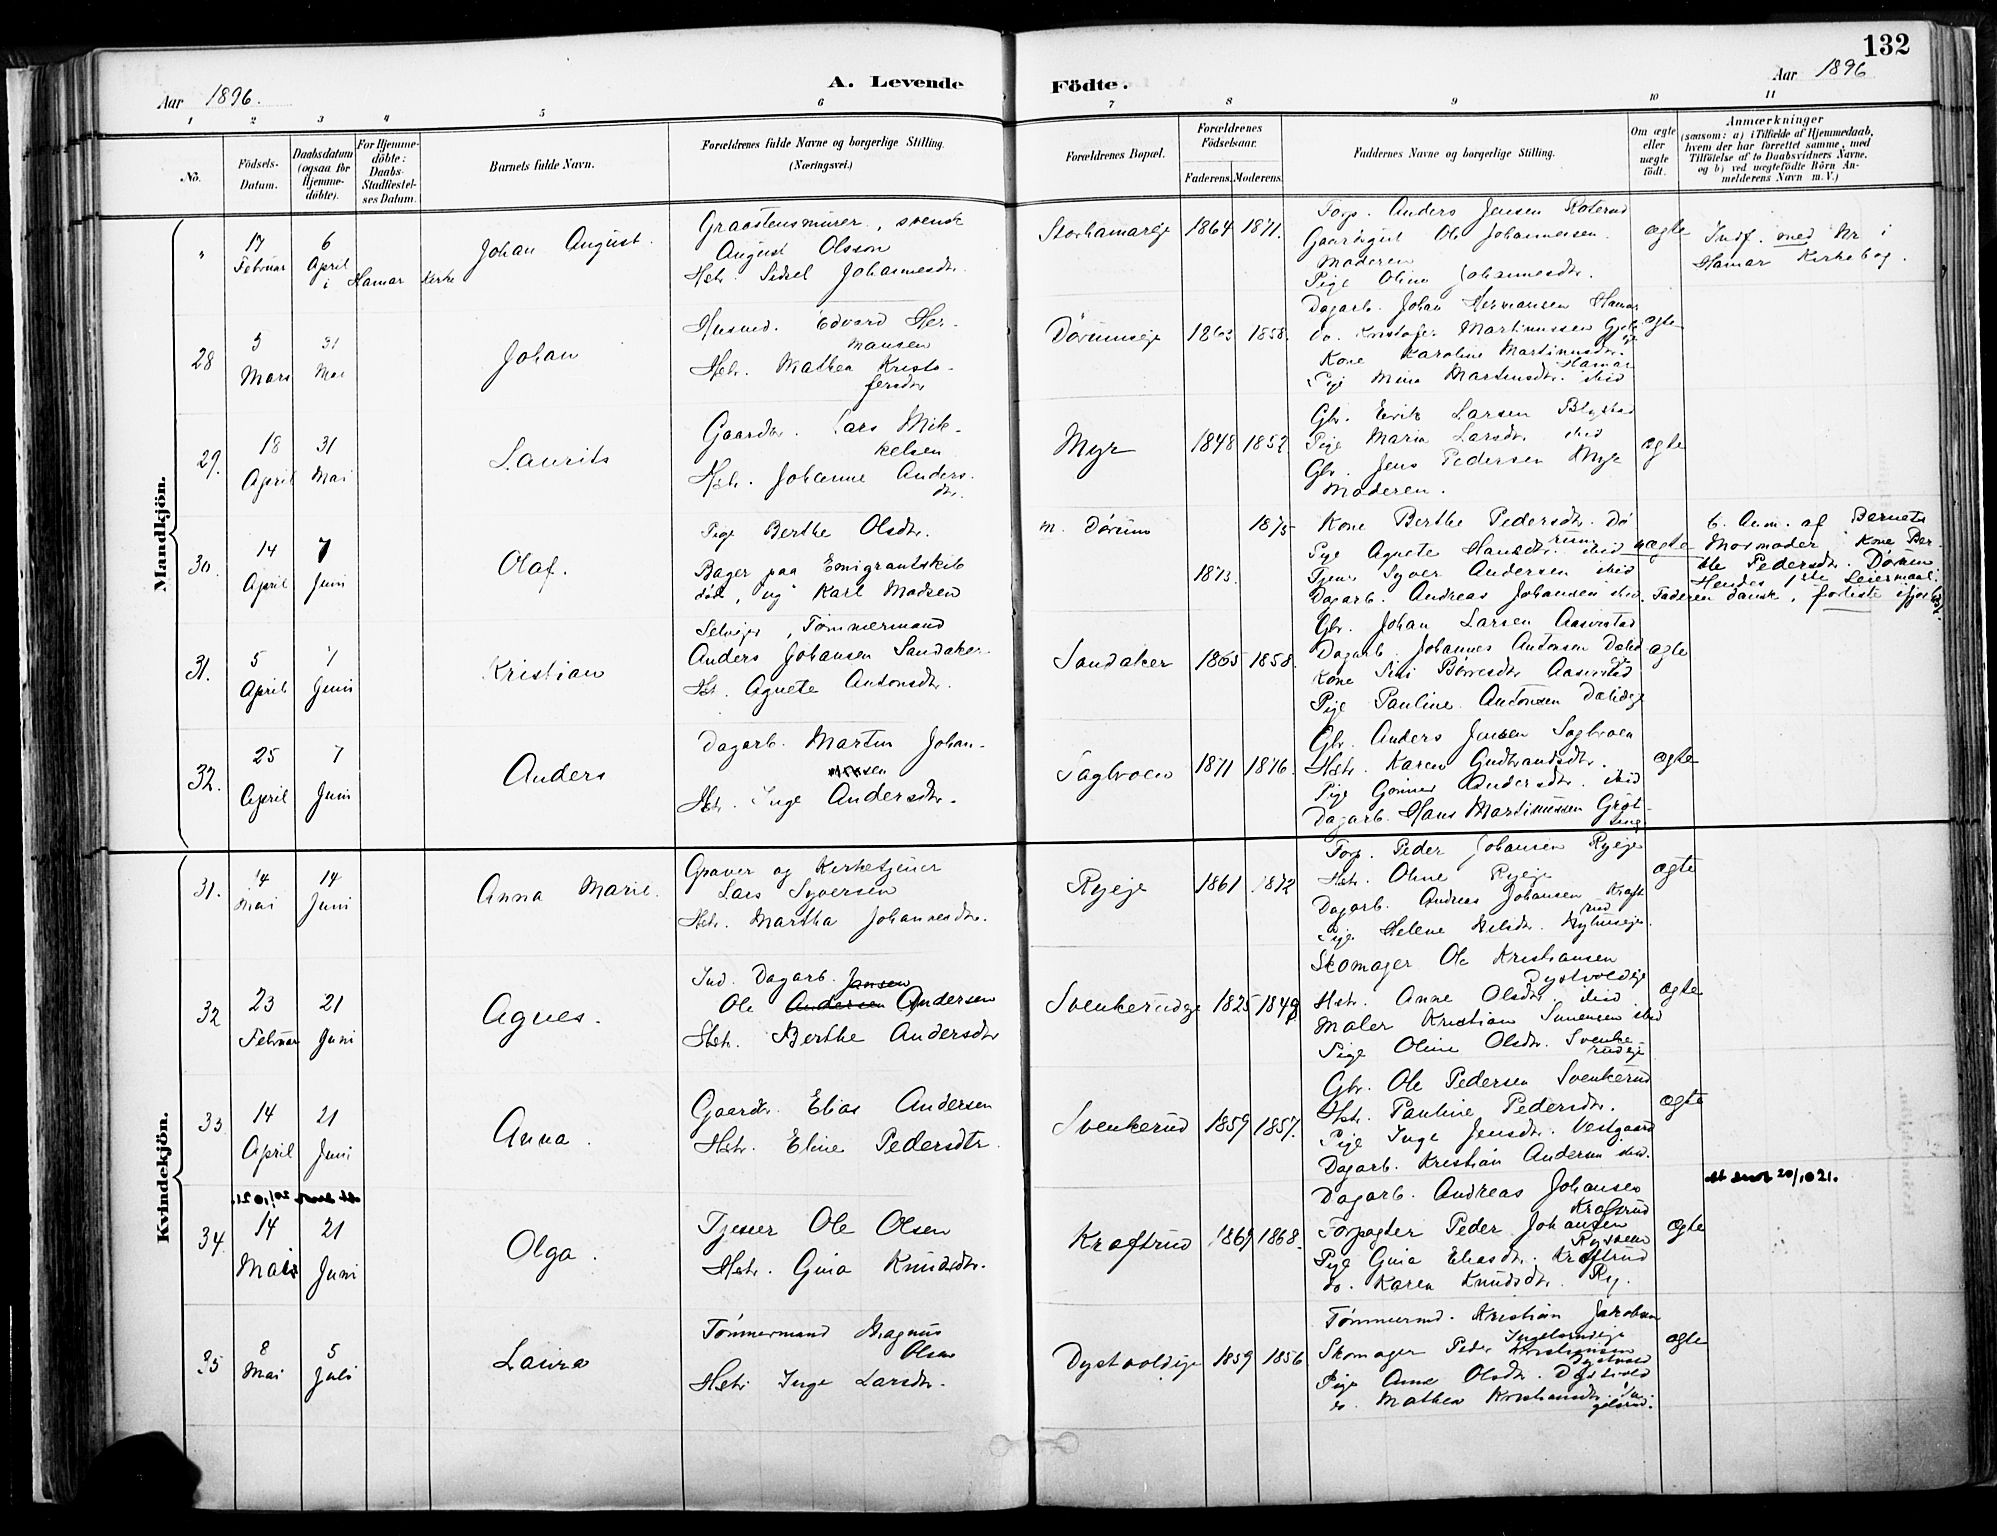 132
Aar 1896.
A. Levende Födte.
Aar 1896
1 2 3 4 5 6 7 8 9 10 11
No.
Födsels-Datum.
Daabsdatum (ogsaa for Hjemme-döbte).
For Hjemme-döbte: Daabs-Stadfæstel-ses Datum.
Barnets fulde Navn.
Forældrenes fulde Navne og borgerlige Stilling. (Næringsvei.)
Forældrenes Bopæl.
Forældrenes Födselsaar.
Faderens. Moderens.
Faddernes Navne og borgerlige Stilling.
Om ægte eller uægte födt.
Anmærkninger (saasom: a) i Tilfælde af Hjemmedaab, hvem der har forrettet samme, med Tilföielse af to Daabsvidners Navne, og b) ved uægtefödte Börn An-melderens Navn m. V.)
Mandkjön.
"
17 Februar
6 April i Hamar Kirke
Johan August.
Graastensmurer, svensk
August Olsson
Hstr. Sidsel Johannesdtr.
Storhamareje
1864 1871.
Forp. Anders Jensen Roterud
Ole Johannesen.
Moderen
Pige Oline Johannesdtr.
ægte
Indf. med Nr i
Hamar Kirkebog.
28
3 Mars
31 Mai
Johan
Husmd. Edvard Her-
mansen
Hstr. Mathea Kristo-
fersdtr
Dørumseje
1863 1858.
Dagarb. Johan Hermansen Hamar
do. Kristofer Martinussen
Kone Karoline Martinusdtr.
Hamar
Pige Mina Martinsdtr. sted
ægte
29.
18 April
31 Mai
Laurits
Gaardbr. Lars Mik-
kelsen
Hstr. Johanne Anders-
dtr.
Myr
1848 1852.
Gbr. Erik Larsen Blystad
Pige Maria Larsdtr. sted
Gbr. Jens Pedersen Myr
Moderen.
ægte
30.
14 April
7 Juni
Olaf.
Pige Berthe Olsdtr.
Bager paa Emigrantskib
død, ug Karl Madsen
m. Dørum
1875
1873.
Kone Berthe Pedersdtr. Dø
rum
Pige Agnete Hansdtr. sted
Tjener Syver Andersen sted
Dagarb. Andreas Johansen sted.
uægte
b. Anm. af Barnets
Mormoder Kone Ber-
the Pedersdtr. Dørum
Hendes 1ste Leiermaal.
Faderen dansk,
31.
5 April
7 Juni
Kristian
Selveier, Tømmermand
Anders Johansen Sandaker
Hst. Agnete Antonsdtr.
Sandaker
1865 1858.
Gbr. Johan Larsen Aaserstad
Dagarb. Johannes Antonsen
Kone Siri Børresdtr Aaserstad
Pige Pauline Antonsen
ægte
32.
25 April
7 Juni
Anders
Dagarb. Martin Johan-
sen
Hst. Inge Andersdtr.
Sagbroen
1871 1876.
Gbr. Anders Jensen Sagbroen
Hstr. Karen Gudbrandsdtr.
Pige Gunner Andersdtr. sted
Dagarb. Hans Martinussen Grøt-
ægte
Kvindekjön.
31.
14 Mai
14 Juni
Anna Marie.
Graver og Kirketjener
Lars Syversen
Hstr. Martha Johannesdtr.
Ryeje
1861 1872
Forp. Peder Johansen Ryeje
Hstr. Oline Ryeje
Dagarb. Andreas Johansen Kraft
rud
Pige Helene Nilsdtr.
ægte
32
23 Februar
21 Juni
Agnes.
Ind. Dagarb. Jansen
Ole Andersen Andersen
Hstr. Berthe Andersdtr
Svenkerudeje
1825 1849
Skomager Ole Kristiansen
Dystvoldeje
Hstr. Anne Olsdtr sted
Maler Kristian Simensen sted
Pige Oline Olsdtr. Svenke-
rudeje
ægte
33
14 April
21 Juni
Anna.
Gaardbr. Elias Andersen
Hstr. Eline Pedersdtr.
Svenkerud
1859 1857.
Gbr. Ole Pedersen Svenkerud
Hstr. Pauline Pedersdtr.
Pige Inge Jensdtr. Vestgaard
Dagarb. Kristian Andersen sted.
ægte
20/10 21.
34.
14 Mai
21 Juni
Olga.
Tjener Ole Olsen
Hstr. Gina Knudsdtr.
Kraftrud
1869 1868.
Dagarb. Andreas Johansen
Kraftrud
Forpagter Peder Johansen
Pige Gina Eliasdtr. Kraftrud
do. Karen Knudsdtr. Ry.
ægte
20/10 21.
35
8 Mai
5 Juli
Laura
Tømmermand Magnus
Olsen
Hstr Inge Larsdtr.
Dystvoldeje
1859 1856
Tømmermd. Kristian Jakobsen
Skomager Peder Kristiansen
Dystvold
Pige Anne Olsdtr. Dystvold
do. Mathea Kristiansdtr. In-
gelsrud.
ægte